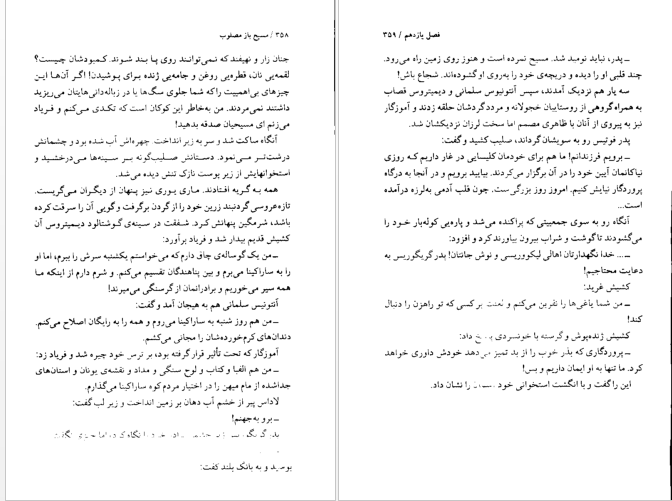 ۳۵۸ / مسیح باز مصلوب
چنان زار و نهیفند که نمی‌توانند روی پا بند شوند. کمبودشان چیست؟
لقمه‌یی نان، قطره‌یی روغن و جامه‌یی ژنده برای پوشیدن! اگر آن‌ها این
چیزهای بی‌اهمیت را که شما جلوی سگ‌ها یا در زباله‌دانی‌هایتان می‌ریزید
داشتند نمی‌مردند. من به‌خاطر این کودکان است که تکدی می‌کنم و فریاد
می‌زنم ای مسیحیان صدقه بدهید!
آنگاه ساکت شد و سر به زیر انداخت. چهره‌اش آب شده بود و چشمانش
درشت‌تر می‌نمود. دستانش صلیب‌گونه بر سینه‌ها می‌درخشید و
استخوانهایش از زیر پوست نازک تنش دیده می‌شد.
همه به گریه افتادند. ماری یوری نیز پنهان از دیگران می‌گریست.
تازه‌عروسی گردنبند زرین خود را از گردن برگرفت و گویی آن را سرقت کرده
باشد، شرمگین پنهانش کرد. شفقت در سینه‌ی گوشتالود دیمیتروس آن
کشیش قدیم بیدار شد و فریاد برآورد:
ــ من یک گوساله‌ی چاق دارم که می‌خواستم یکشنبه سرش را ببرم، اما او
را به ساراکینا می‌برم و بین پناهندگان تقسیم می‌کنم. و شرم دارم از اینکه ما
همه سیر می‌خوریم و برادرانمان از گرسنگی می‌میرند!
آنتونیس سلمانی هم به هیجان آمد و گفت:
ــ من هم روز شنبه به ساراکینا می‌روم و همه را به رایگان اصلاح می‌کنم.
دندان‌های کرم‌خورده‌شان را مجانی می‌کشم.
آموزگار که تحت تأثیر قرار گرفته بود، بر ترس خود چیره شد و فریاد زد:
ــ من هم الفبا و کتاب و لوح سنگی و مداد و نقشه‌ی یونان و استان‌های
جداشده از مام میهن را در اختیار مردم کوه ساراکینا می‌گذارم.
لاداس پیر از خشم آب دهان بر زمین انداخت و زیر لب گفت:
ــ برو به‌جهنم!
و به بانگ بلند گفت:
فصل یازدهم / ۳۵۹
ــ پدر، نباید نومید شد. مسیح نمرده است و هنوز روی زمین راه می‌رود.
چند قلبی او را دیده و دریچه‌ی خود را به‌روی او گشوده‌اند. شجاع باش!
سه یار هم نزدیک آمدند، سپس آنتونیوس سلمانی و دیمیتروس قصاب
به همراه گروهی از روستاییان خجولانه و مردد گردشان حلقه زدند و آموزگار
نیز به پیروی از آنان با ظاهری مصمم اما سخت لرزان نزدیکشان شد.
پدر فوتیس رو به سویشان گرداند، صلیب کشید و گفت:
ــ برویم فرزندانم! ما هم برای خودمان کلیسایی در غار داریم که روزی
نیاکانمان آیین خود را در آن برگزار می‌کردند. بیایید برویم و در آنجا به درگاه
پروردگار نیایش کنیم. امروز روز بزرگی‌ست. چون قلب آدمی به‌لرزه درآمده
است...
آنگاه رو به سوی جمعیتی که پراکنده می‌شد و پاره‌یی کوله‌بار خود را
می‌گشودند تا گوشت و شراب بیرون بیاورند کرد و افزود:
ــ ... خدا نگهدارتان اهالی لیکووریسی و نوش جانتان! پدر گریگوریس به
دعایت محتاجیم!
کشیش غرید:
ــ من شما یاغی‌ها را نفرین می‌کنم و لعنت بر کسی که تو راهزن را دنبال
کند!
کشیش ژنده‌پوش و گرسنه با خونسردی پاسخ داد:
ــ پروردگاری که بذر خوب را از بد تمیز می‌دهد خودش داوری خواهد
کرد. ما تنها به او ایمان داریم و بس!
این را گفت و با انگشت استخوانی خود را نشان داد.